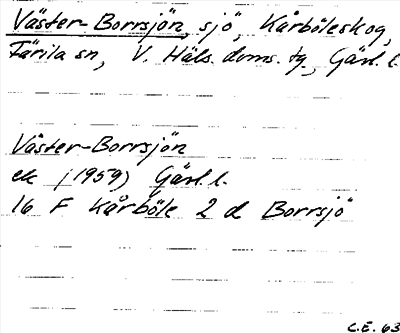 Väster-Borrsjön, sjö, Kårböleskog,
Färila sn, V. Häls. doms. tg, Gävl. l.
Väster-Borrsjön
ek (1959) Gävl. l.
16 F Kårböle 2 d Borrsjö
C.E. 63